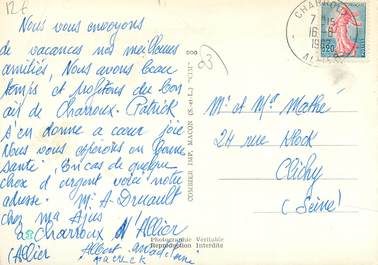 12€
Nous vous envoyons
de vacances nos meilleures
amitiés, Nous avons beau
temps et profitons du bon
air de Charroux. Patrick
s'en donne a cœur joie
Nous vous espérons en bonne
santé. En cas de quelque
chose d'urgent voici notre
adresse. Mr A. Druault
chez ma
a Charroux d'Allier
(Allier
Albert
Patrick
93
COMBIER IMP. MACON (S.-et-L.) "CIM"
Photographie Véritable
Reproduction Interdite
CHARROUX
7 H 15
16-8
ALLIER
0,20
Mr et Mme Mathé
24 rue Klock
Clichy
(Seine)